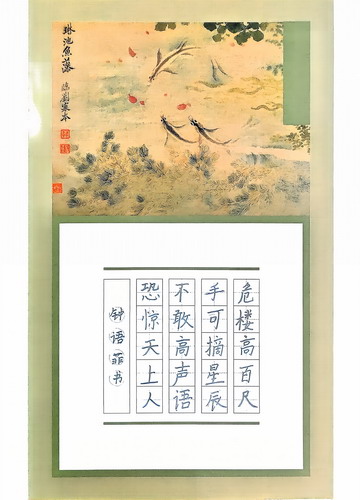 琳池鱼藻
临刘寀本
危楼高百尺
手可摘星辰
不敢高声语
恐惊天上人
钟语菲书